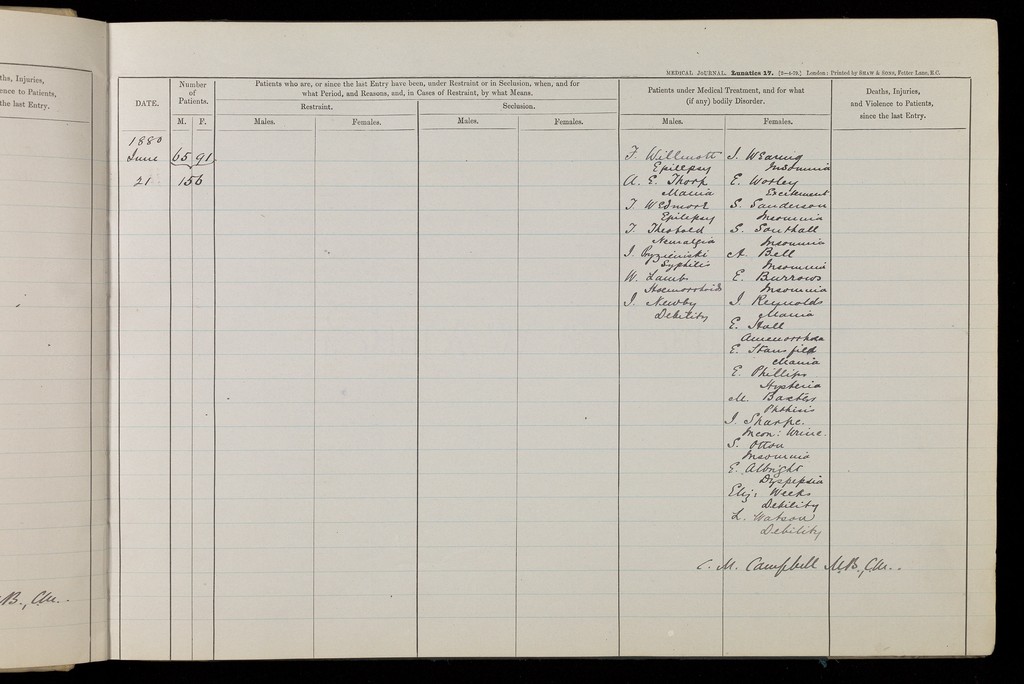 ths, Injuries,
ence to Patients,
the last Entry.
B., C.M.
MEDICAL JOURNAL. Lunatics 17. [9—4-79.] London: Printed by SHAW & SONS, Fetter Lane, E.C.
DATE.
Number
of
Patients.
M. F.
Patients who are, or since the last Entry have been, under Restraint or in Seclusion, when, and for
what Period, and Reasons, and, in Cases of Restraint, by what Means.
Restraint.
Seclusion.
Males.
Females.
Males.
Females.
Patients under Medical Treatment, and for what
(if any) bodily Disorder.
Males.
Females.
Deaths, Injuries,
and Violence to Patients,
since the last Entry.
1880
June
21
65 91
156
F. Willmott
Epilepsy
A. E. Thorp
Mania
T. Wedmore
Epilepsy
T. Theobald
Neuralgia
Syphilis
W. Lamb
Haemorrhoids
J. Newby
Debility
J. Wearing
Insomnia
E. Worley
Excitement
S. Sanderson
Insomnia
S. Southall
Insomnia
A. Bell
Insomnia
E. Burrows
Insomnia
J. Reynolds
Mania
E. Hall
Amenorrhoea
E. Stansfield
Mania
E. Phillips
Hysteria
M. Baxter
Phthisis
J. Sharpe
Incon: Urine.
S. Otton
Insomnia
E. Albright
Dyspepsia
Eliz: Weeks
Debility
L. Watson
Debility
C. M. Campbell M.B., C.M.